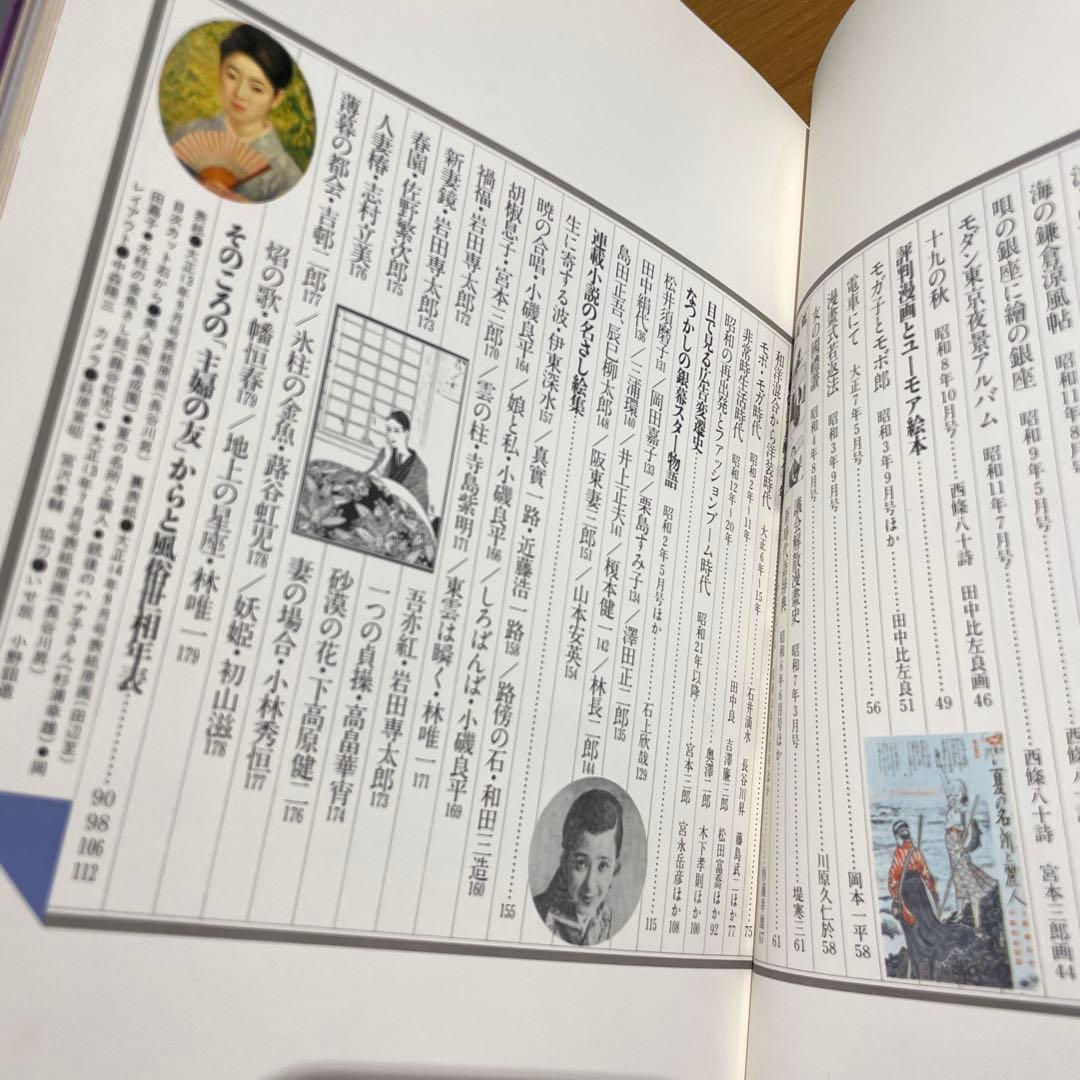 海の鎌倉涼風帖 昭和11年8月号
唄の銀座に繪の銀座 昭和9年5月号 西條八十詩 宮本三郎画 44
モダン東京夜景アルバム 昭和11年7月号
十九の秋 昭和8年10月号 西條八十詩 田中比左良画 46
評判漫画とユーモア絵本 49
モガ子とモボ郎 昭和3年9月号ほか 田中比左良 51
電車にて 大正7年5月号 56
漫畫式若返法 昭和3年9月号 岡本一平 58
昭和4年8月号 川原久仁於 58
議会解散漫畫史 昭和7年3月号 堤寒三 61
昭和6年6月号ほか 61
和洋混合から洋装時代 大正6年〜15年 石井滴水
モボ・モガ時代 昭和2年〜11年 長谷川昇 75
非常時生活時代 昭和12年〜20年 吉澤廉三郎 藤島武二ほか 77
昭和の再出発とファッションブーム時代 昭和21年以降 田中良 奥澤二郎 松田富喬ほか 92
目で見る広告変遷史 木下孝則ほか 100
なつかしの銀幕スター物語 昭和2年5月号ほか 宮本三郎 宮永岳彦ほか 108
松井須磨子131／岡田嘉子133／栗島すみ子134／澤田正二郎135 石上欣哉 129
田中絹代136／三浦環140／井上正夫141／榎本健一142／林長二郎144
島田正吾、辰巳柳太郎148／阪東妻三郎151／山本安英154
連載小説の名さし絵集 115
生に寄する波・伊東深水157／真實一路・近藤浩一路158／路傍の石・和田三造160 155
暁の合唱・小磯良平164／娘と私・小磯良平166／しろばんば・小磯良平169
胡椒息子・宮本三郎170／雲の柱・寺島紫明171／東雲は瞬く・林唯一171
禍福・岩田専太郎172
吾亦紅・岩田専太郎173
新妻鏡・岩田専太郎173
一つの貞操・高畠華宵174
春園・佐野繁次郎175
砂漠の花・下高原健二176
人妻椿・志村立美176
妻の場合・小林秀恒177
薄暮の都会・吉邨二郎177／氷柱の金魚・蕗谷虹児178／妖姫・初山滋178
焰の歌・幡恒春179／地上の星座・林唯一179
そのころの「主婦の友」からと風俗世相年表 90 98 106 112
表紙●大正13年9月号表紙原画(長谷川昇) 裏表紙●大正14年9月号表紙原画(田辺至)
目次カット右から●美人画(島成園)●夏の名所と麗人●銃後のハナ子さん(杉浦幸雄)●岡
田嘉子●氷柱の金魚さし絵(蕗谷虹児)●大正13年9月号表紙原画(長谷川昇)
レイアウト●中森陽三 カメラ●萩原昭 宮沢孝輔 協力●いせ辰 小野詮造
夏の名所と麗人